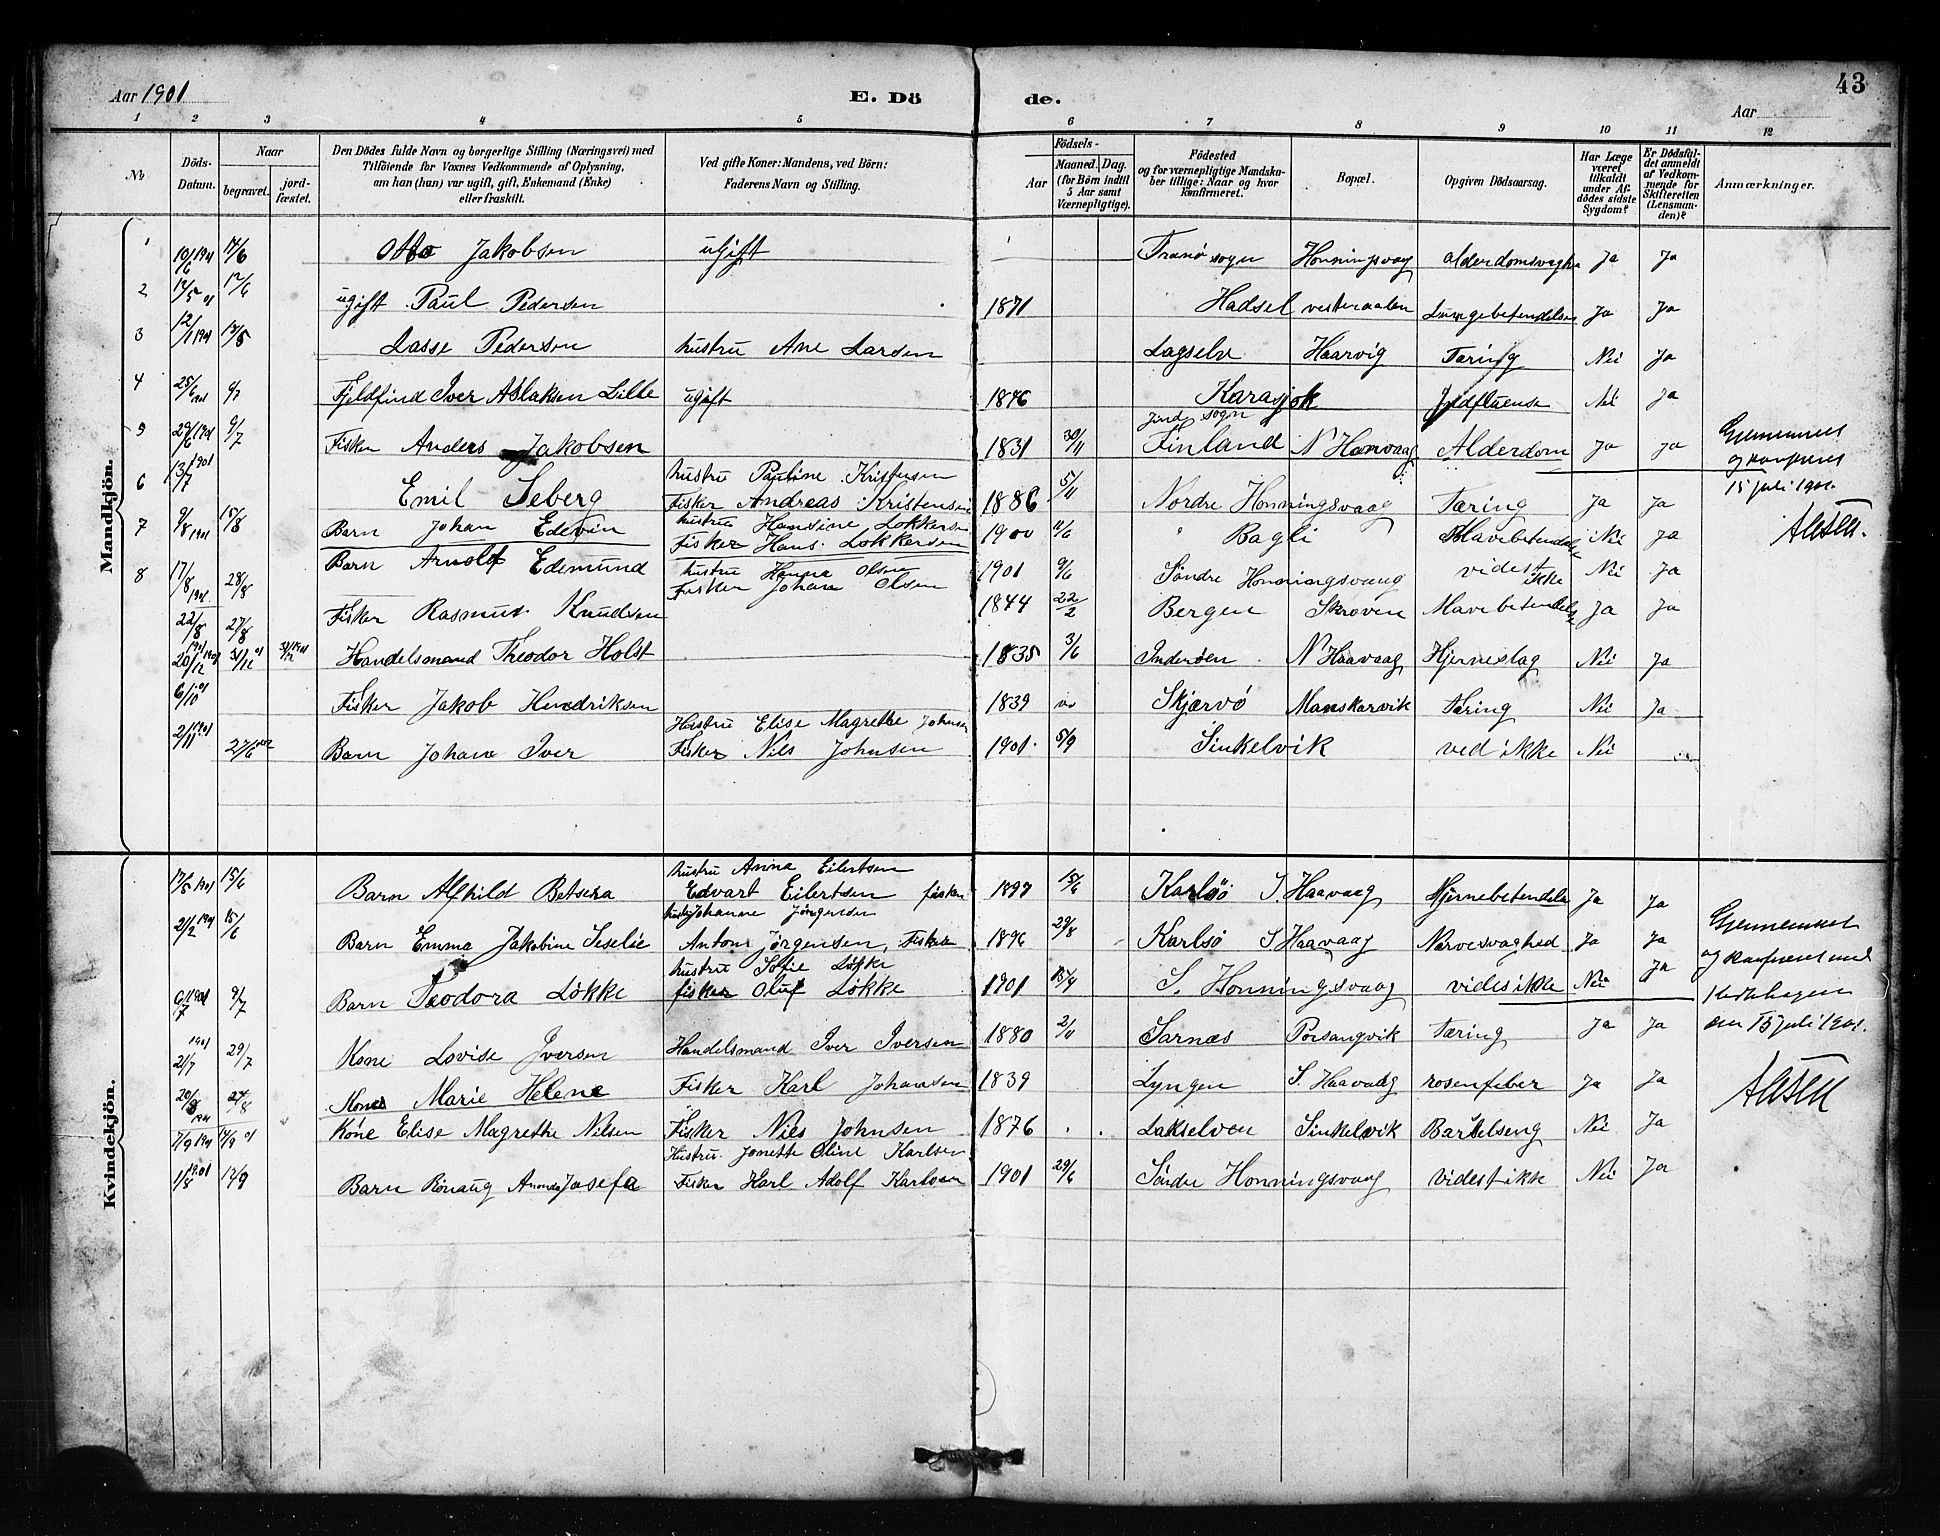 43
Aar 1901 E. Dö de. Aar
1 2 3 4 5 6 7 8 9 10 11 12
No
Döds-Datum.
Naar
begravet.
jord-fæstet.
Den Dödes fulde Navn og borgerlige Stilling (Næringsvei) med
Tilföiende for Voxnes Vedkommende af Oplysning,
om han (hun) var ugift, gift, Enkemand (Enke)
eller fraskilt.
Ved gifte Koner: Mandens, ved Börn:
Faderens Navn og Stilling.
Födsels-
Aar
Maaned. Dag.
(for Börn indtil
5 Aar samt
Værnepligtige).
Födested
og for værnepligtige Mandska-
ber tillige: Naar og hvor
konfirmeret.
Bopæl.
Opgiven Dödsaarsag.
Har Læge
været
tilkaldt
under Af-
dödes sidste
Sygdom?
Er Dödsfal-
det anmeldt
af Vedkom-
mende for
Skifteretten
(Lensman-
den)?
Anmærkninger.
Mandkjön.
1 10/6 1901 17/6 Otto Jakobsen ugift Tranø sogn Honningsvaag Ja Ja
2 17/6 ugift Paul Pedersen 1871 Hadsel vesteraalen Ja Ja
3 Lasse Pedersen hustru Ane Larsen Haarvig Tæring Nei Ja
4 25/6 1901 Fjeldfind Iver Aslaksen Lille ugift 1846 Karasjok Nei Ja
sogn
5 29/6 1901 9/7 Fisker Anders Jakobsen 1831 30/11 Finland Alderdom Ja Ja
Gjennemseet
6 13/7 1901 hustru Pauline Kristensen
Emil Seberg Fisker Andreas Kristensen 1886 5/11 Nordre Honningsvaag Tæring Ja Ja
15 juli 1901.
7 9/8 1901 15/8 Barn Johan Edevin hustru Hansine Løkkersen
Fisker Hans Løkkersen 1900 11/6 Nei Ja
8 17/8 1901 28/8 Barn Arnolf Edemund hustru Hanna Olsen
Fisker Johan Olsen 1901 9/6 Söndre Honningsvaag videst ikke Nei Ja
22/8 1901 27/8 Fisker Rasmus Knudsen 1844 22/2 Bergen Skroven Mavebetendelse Ja Ja
20/12 1901 Handelsmand Theodor Holst 1835 3/6 Inderøen N Haavaag Hjerneslag Nei Ja
6/10 01 Fisker Jakob Hendriksen 1839 Skjærvö Manskarvik Tæring Nei Ja
2/11 1901 27/6 1902 Barn Johan Iver Hustru Elise Magrethe Johnsen
Fisker Nils Johnsen 1901. 5/9 Sinkelvik ved ikke Nei
Kvindekjön.
17/5 1901 15/6 Barn Alfhild Betsera hustru Anna Eilertsen
Edvart Eilertsen fisker 1897 15/6 Karlsö S. Haavaag Hjernebetendelse Ja Ja
2/2 1901 15/6 Barn Emma Jakobine Seselie hustru Johanne Jörgensen
Anton Jörgensen, Fisker 1896 29/8 Karlsö S. Haavaag Nervesvaghed Ja Ja
6/7 1901 9/7 Barn Teodora Løkke hustru Sofie Løkke
fisker Oluf Løkke 1901 15/4 S. Honningsvaag vides ikke Nei Ja
2/7 1901 29/7 Kone Lovise Iversen Handelsmand Iver Iversen 1880 2/11 Sarnæs Porsangvik Tæring Ja Ja
15 juli 1901.
20/8 1901 24/8 Kone Marie Helene Fisker Karl Johansen 1839 Lyngen S. Haavaag rosenfeber Ja Ja
7/9 1901 14/9 01 Kone Elise Magrethe Nilsen Fisker Nils Johnsen 1876 Lakselven Sinkelvik Barselseng Nei Ja
1/8 1901 Barn Rönaug Amanda Josefa Hustru. Jonette Oline Karlsen
Fisker Karl Adolf Karlsen 1901 29/6 Söndre Honningsvaag videst ikke Nei Ja